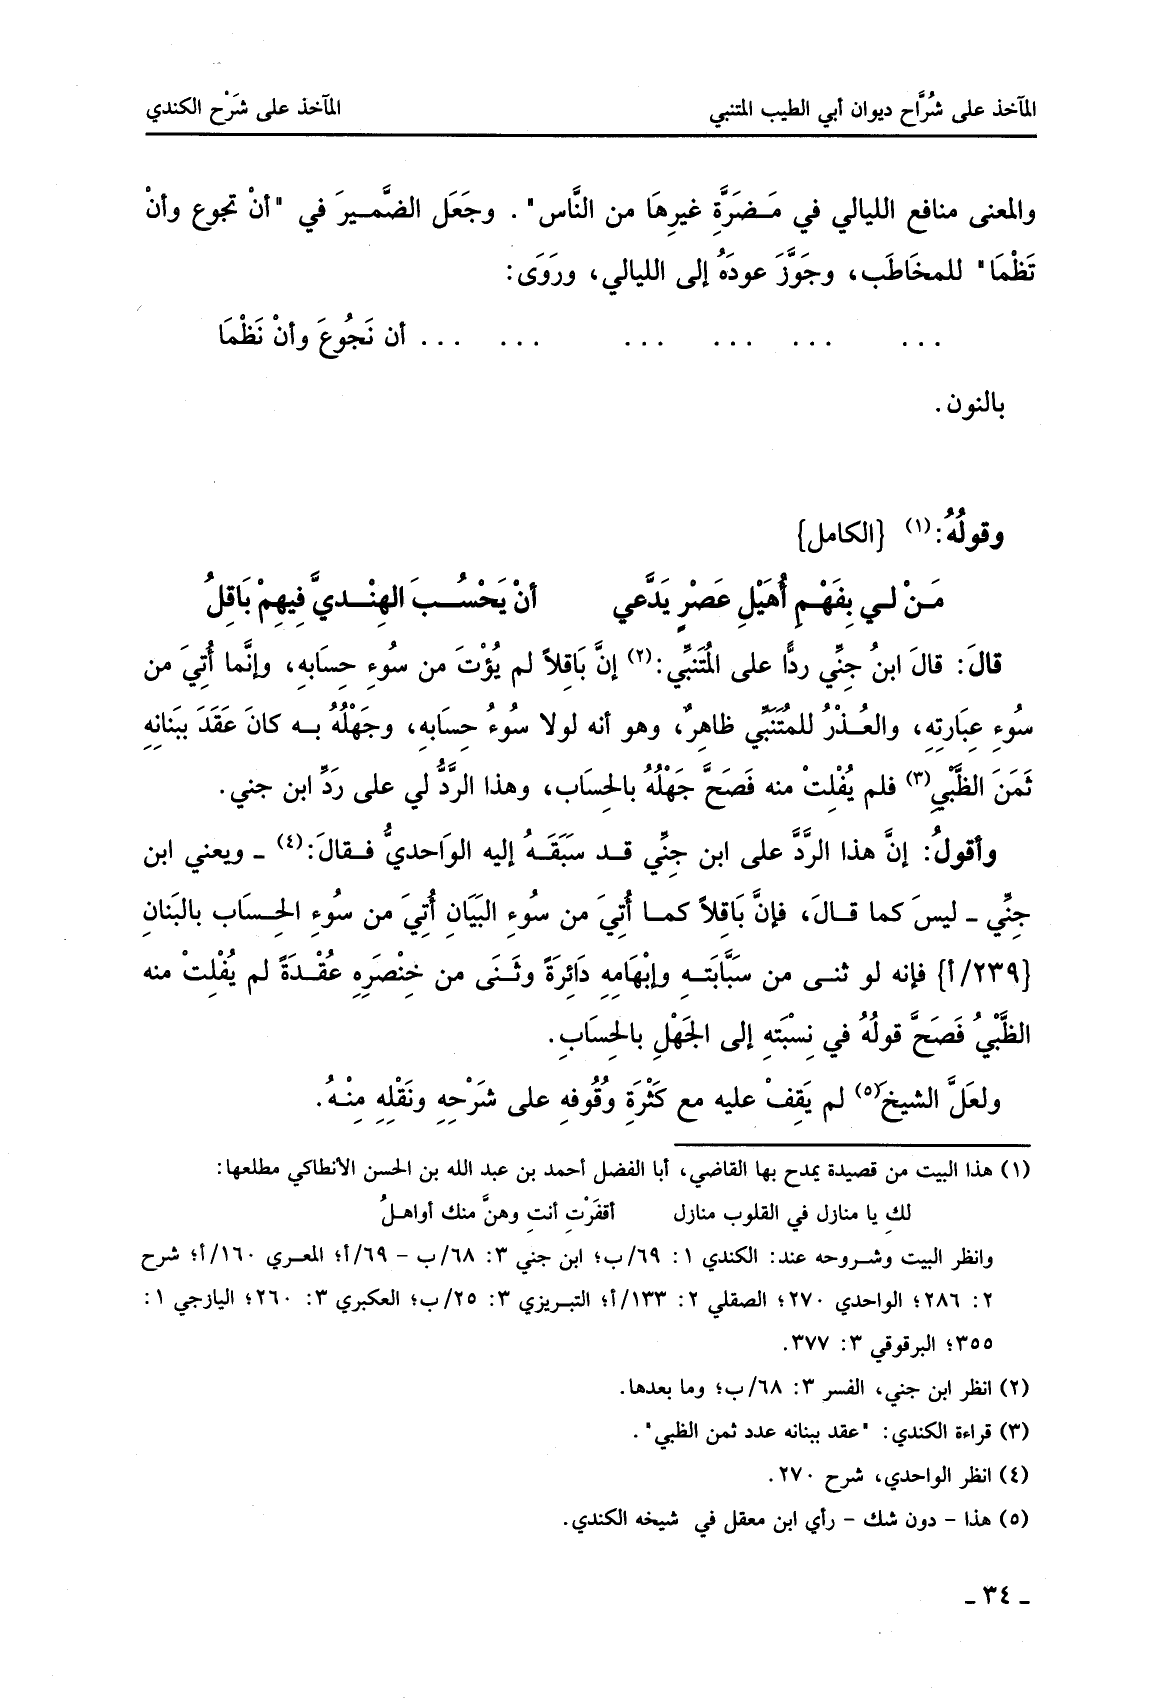 المآخذ على شُرَّاح ديوان أبي الطيب المتنبي المآخذ على شَرْح الكندي
والمعنى منافع الليالي في مَضَرَّةِ غيرِهَا من النَّاس". وجَعَل الضَّميرَ في "أنْ تجوع وأنْ
تَظْمَا" للمخَاطَب، وجَوَّزَ عودَهُ إلى الليالي، ورَوَى:
... ... ... ... ... ... أن نَجُوعَ وأنْ نَظْمَا
بالنون.
وقولُهُ:(١) {الكامل}
مَنْ لي بِفَهْمِ أُهَيْلِ عَصْرٍ يَدَّعي أنْ يَحْسُبَ الهِنْديَّ فِيهِمْ بَاقِلُ
قالَ: قالَ ابنُ جنِّي ردًّا على المُتَنبِّي:(٢) إنَّ بَاقِلاً لم يُؤْتَ من سُوءِ حِسَابِهِ، وإنَّما أُتِيَ من
سُوءِ عِبَارتِهِ، والعُذْرُ للمُتَنَبِّي ظاهِرٌ، وهو أنه لولا سُوءُ حِسابِهِ، وجَهْلُهُ به كانَ عَقَدَ بِبَنانِهِ
ثَمَنَ الظَّبْيِ(٣) فلم يُفْلِتْ منه فَصَحَّ جَهْلُهُ بالحِسَاب، وهذا الرَّدُّ لي على رَدِّ ابن جني.
وأقولُ: إنَّ هذا الرَّدَّ على ابن جنِّي قد سَبَقَهُ إليه الوَاحديُّ فقالَ:(٤) - ويعني ابن
جنِّي - ليسَ كما قالَ، فإنَّ بَاقِلاً كما أُتِيَ من سُوءِ البَيَان أُتِيَ من سُوءِ الحِسَاب بالبَنانِ
{٢٣٩/أ} فإنه لو ثنى من سَبَّابَتهِ وإبْهَامِهِ دَائِرَةً وثَنَى من خِنْصَرِهِ عُقْدَةً لم يُفْلِتْ منه
الظَّبْيُ فَصَحَّ قولُهُ في نِسْبَتهِ إلى الجَهْلِ بالحِسَابِ.
ولعَلَّ الشيخَ(٥) لم يَقِفْ عليه مع كَثْرَةِ وُقُوفِهِ على شَرْحِهِ ونَقْلِهِ مِنْهُ.
(١) هذا البيت من قصيدة يمدح بها القاضي، أبا الفضل أحمد بن عبد الله بن الحسن الأنطاكي مطلعها:
لكِ يا منازل في القلوب منازل أقفَرْتِ أنتِ وهنَّ منك أواهلُ
وانظر البيت وشروحه عند: الكندي ١: ٦٩/ب؛ ابن جني ٣: ٦٨/ب - ٦٩/أ؛ المعري ١٦٠/أ؛ شرح
٢: ٢٨٦؛ الواحدي ٢٧٠؛ الصقلي ٢: ١٣٣/أ؛ التبريزي ٣: ٢٥/ب؛ العكبري ٣: ٢٦٠؛ اليازجي ١:
٣٥٥؛ البرقوقي ٣: ٣٧٧.
(٢) انظر ابن جني، الفسر ٣: ٦٨/ب؛ وما بعدها.
(٣) قراءة الكندي: "عقد ببنانه عدد ثمن الظبي".
(٤) انظر الواحدي، شرح ٢٧٠.
(٥) هذا - دون شك - رأي ابن معقل في شيخه الكندي.
- ٣٤ -